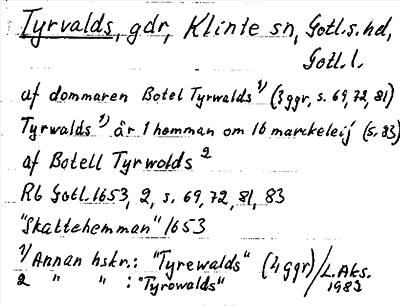 Tyrvalds, gdr, Klinte sn, Gotl.s. hd,
Gotl. l.
af dommaren Botel Tyrwalds 1) (3 ggr, s. 69, 72, 81)
Tyrwalds 1) är 1 hemman om 16 marckeleij (s. 83)
af Botell Tyrwolds 2
Rb Gotl. 1653, 2, s. 69, 72, 81, 83
"Skattehemman" 1653
1) Annan hskr.: "Tyrewalds" (4 ggr) / L. Aks.
2 " " : "Tyrowalds" 1982